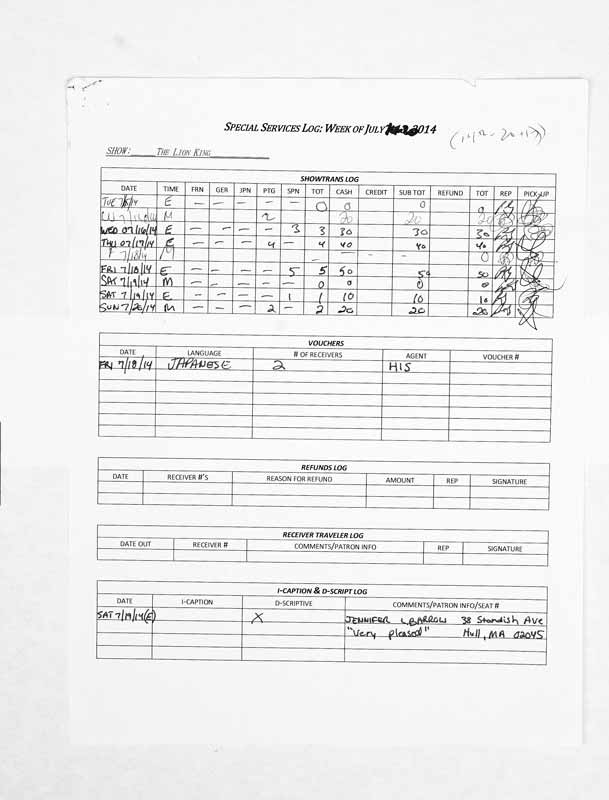 SPECIAL SERVICES LOG: WEEK OF JULY 2014
(14th - 20th)
SHOW: THE LION KING
SHOWTRANS LOG
DATE TIME FRN GER JPN PTG SPN TOT CASH CREDIT SUB TOT REFUND TOT REP PICK-UP
TUE 7/8/14 E — — — — — 0 0 0 0
7/16/14 M 2 20 20 20
WED 07/16/14 E — — — — 3 3 30 30 30
THU 07/17/14 E — — — 4 — 4 40 40 40
F 7/18/14 M — — — — — — — — 0
FRI 7/18/14 E — — — — 5 5 50 50 50
SAT 7/19/14 M — — — — — 0 0 0 0
SAT 7/19/14 E — — — — 1 1 10 10 10
SUN 7/20/14 M — — — 2 — 2 20 20 20
VOUCHERS
DATE LANGUAGE # OF RECEIVERS AGENT VOUCHER #
FRI 7/18/14 JAPANESE 2 HIS
REFUNDS LOG
DATE RECEIVER #'S REASON FOR REFUND AMOUNT REP SIGNATURE
RECEIVER TRAVELER LOG
DATE OUT RECEIVER # COMMENTS/PATRON INFO REP SIGNATURE
I-CAPTION & D-SCRIPT LOG
DATE I-CAPTION D-SCRIPTIVE COMMENTS/PATRON INFO/SEAT #
SAT 7/19/14(E) X JENNIFER LABARROW 38 Standish Ave
"Very pleased" Hull, MA 02045